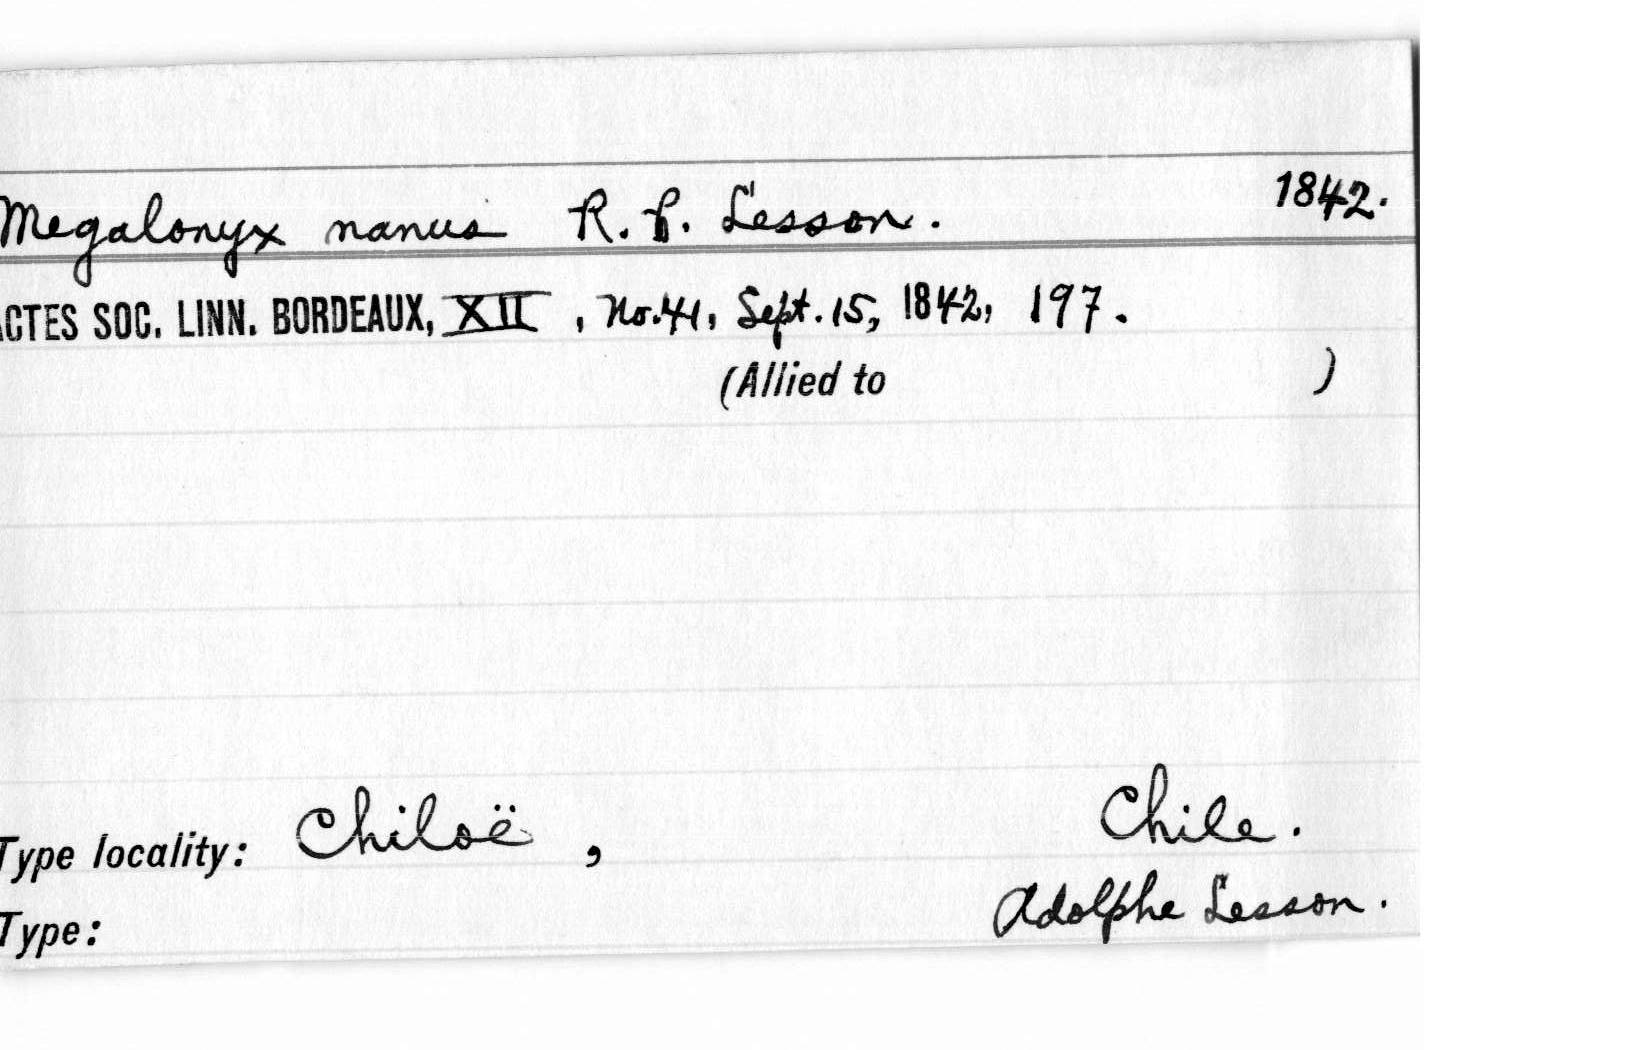 Megalonyx nanus R. P. Lesson. 1842.
ACTES SOC. LINN. BORDEAUX, XII, No. 41, Sept. 15, 1842, 197.
(Allied to )
Type locality: Chiloë, Chile.
Type: Adolphe Lesson.